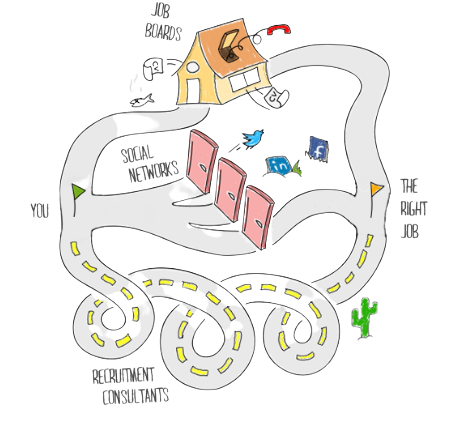 JOB
BOARDS
CV
CV
SOCIAL
NETWORKS
in
f
YOU
THE
RIGHT
JOB
RECRUITMENT
CONSULTANTS